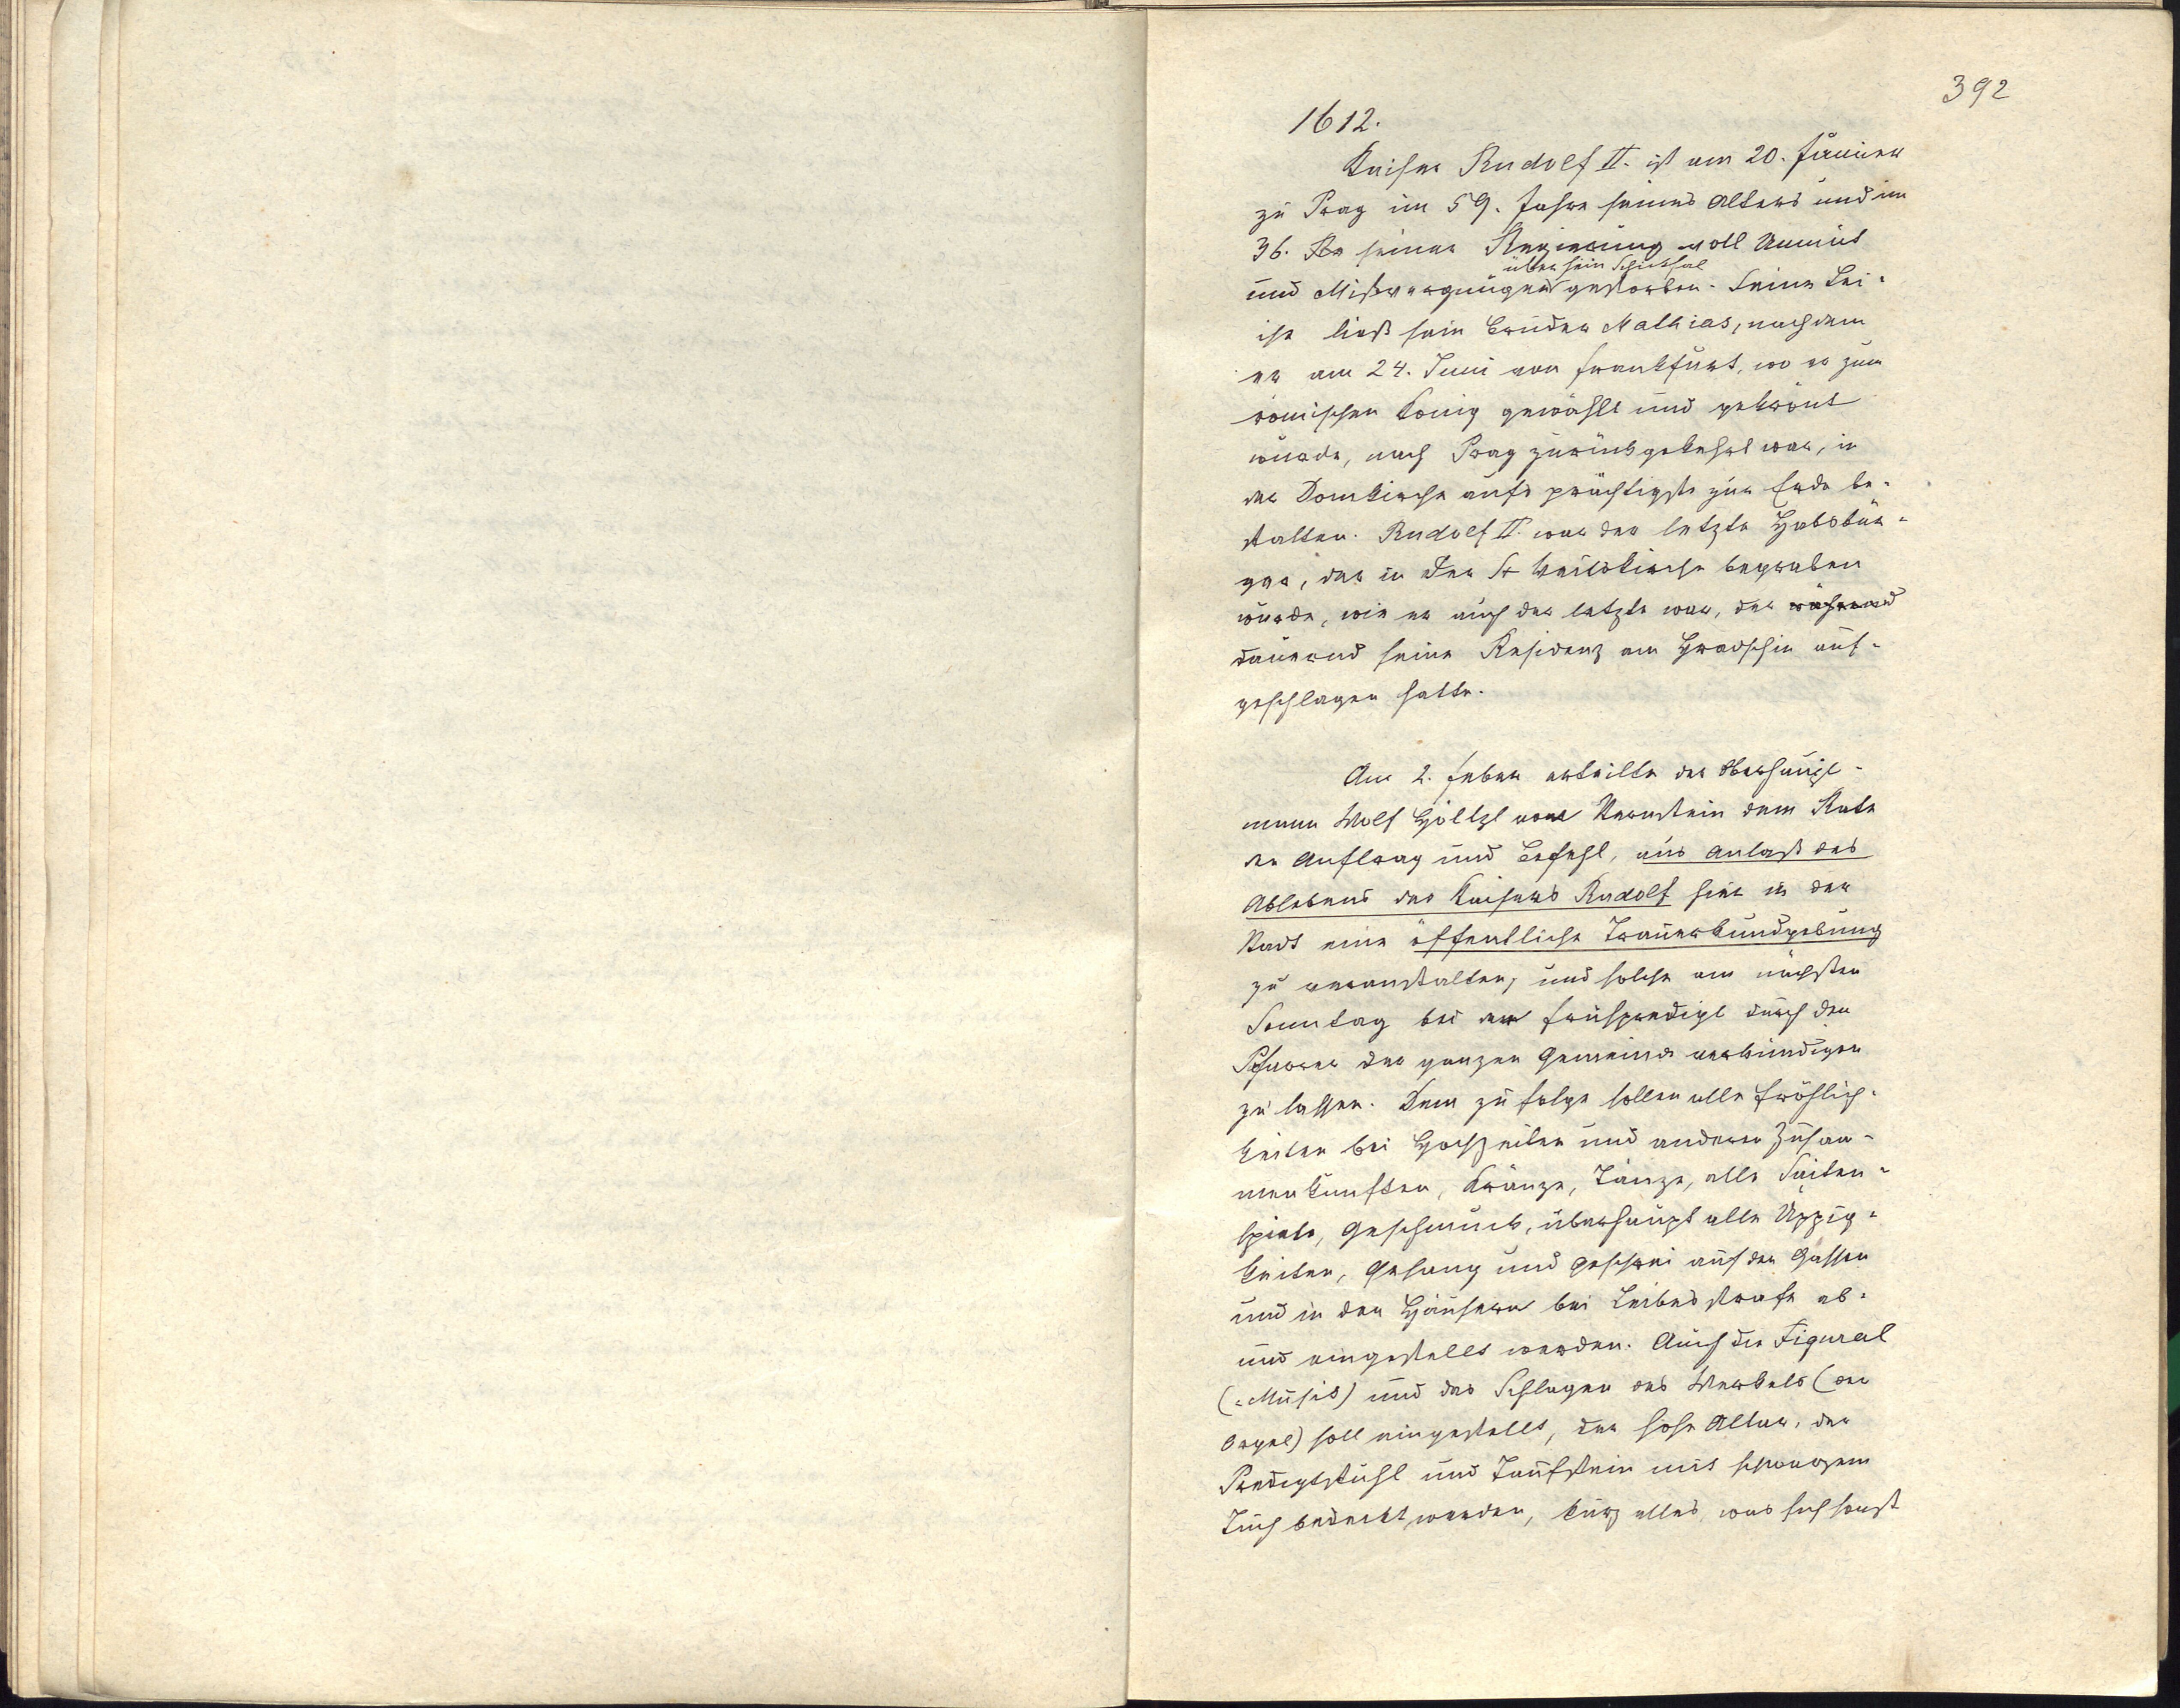 392
1612.
Kaiser Rudolf II. ist am 20. Jänner
zu Prag im 59. Jahre seines Alters und im
36. Re seiner Regierung voll Unmut
über sein Schicksal
und Mißvergnügen gestorben. Seine Lei-
che ließ sein Bruder Mathias, nachdem
er am 24. Juni von Frankfurt, wo er zum
römischen König gewählt und gekrönt
wurde, nach Prag zurückgekehrt war, in
der Domkirche aufs prächtigste zur Erde be-
statten. Rudolf II. war der letzte Habsbur-
ger, der in der St Veitskirche begraben
wurde, wie er auch der letzte war, der während
dauernd seine Residenz am Hradschin auf-
geschlagen hatte.
Am 2. Feber erteilte der Oberhaupt-
mann Wolf Höltzl von Sternstein dem Rate
den Auftrag und Befehl, aus Anlaß des
Ablebens des Kaisers Rudolf hier in der
Stadt eine öffentliche Trauerkundgebung
zu veranstalten, und solche am nächsten
Sonntag bei der Frühpredigt durch den
Pfarrer der ganzen Gemeinde verkündigen
zu lassen. Dem zu folge sollen alle Fröhlich-
keiten bei Hochzeiten und anderen Zusam-
menkunften, Kränze, Tänze, alle Saiten-
spiele, Geschmuck, überhaupt alle Üppig-
keiten, Gesang und Geschrei auf den Gassen
und in den Häusern bei Leibesstrafe ab-
und eingestellt werden. Auch die Figural
(-Musik) und das Schlagen des Werkels (der
Orgel) soll eingestellt, der hohe Altar, der
Predigtstuhl und Taufstein mit schwarzem
Tuch bedeckt werden, kurz alles, was sich sonst